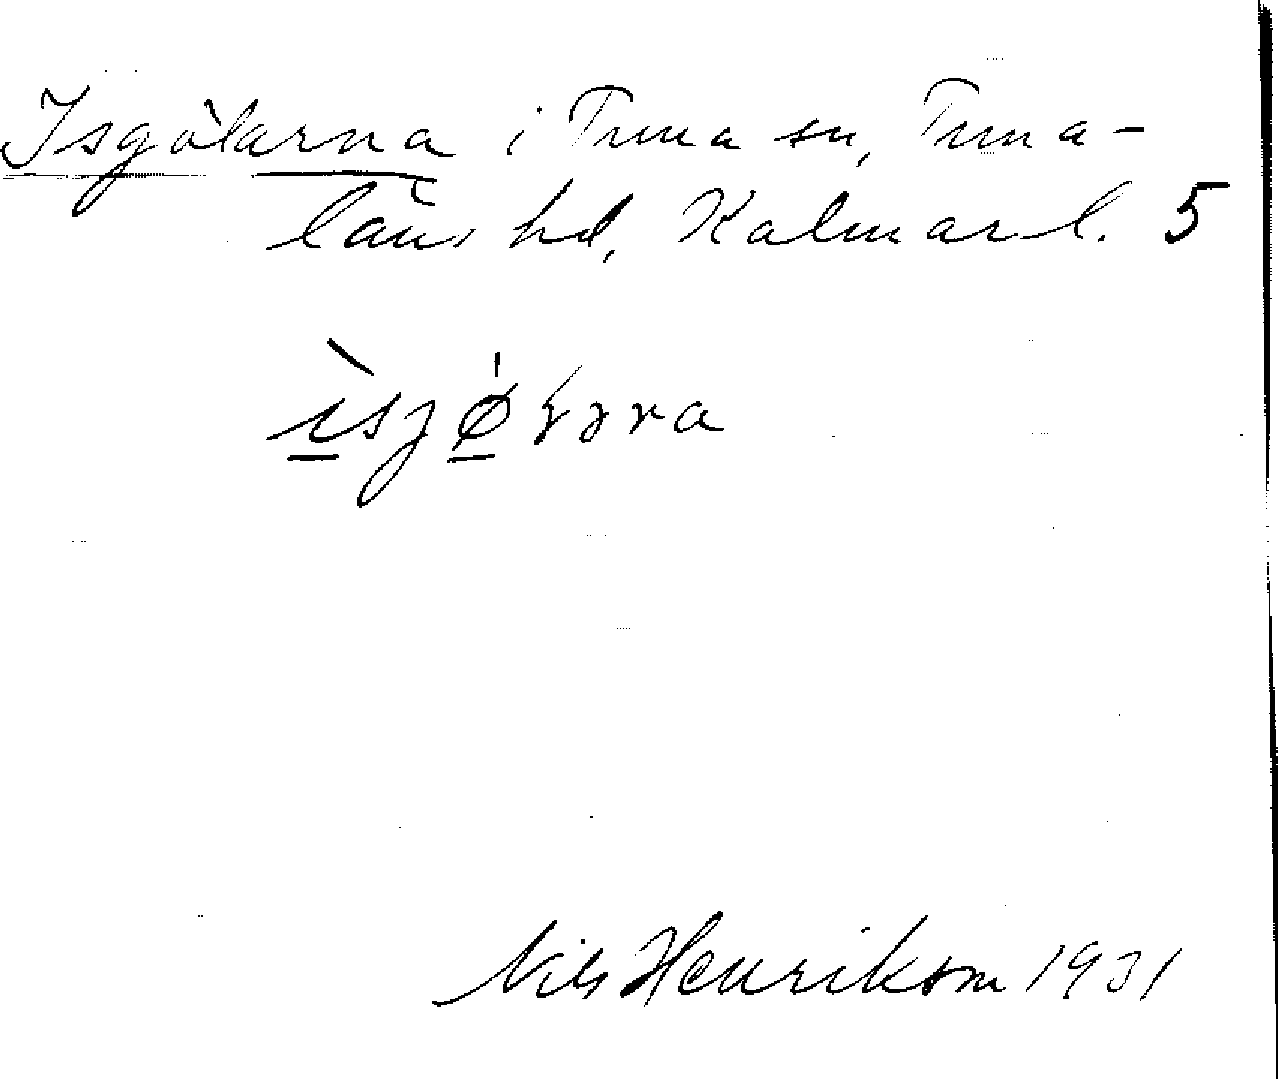 Isgölarna i Tuna sn, Tuna-
läns hd, Kalmar l. 5
Nils Henrikson 1931